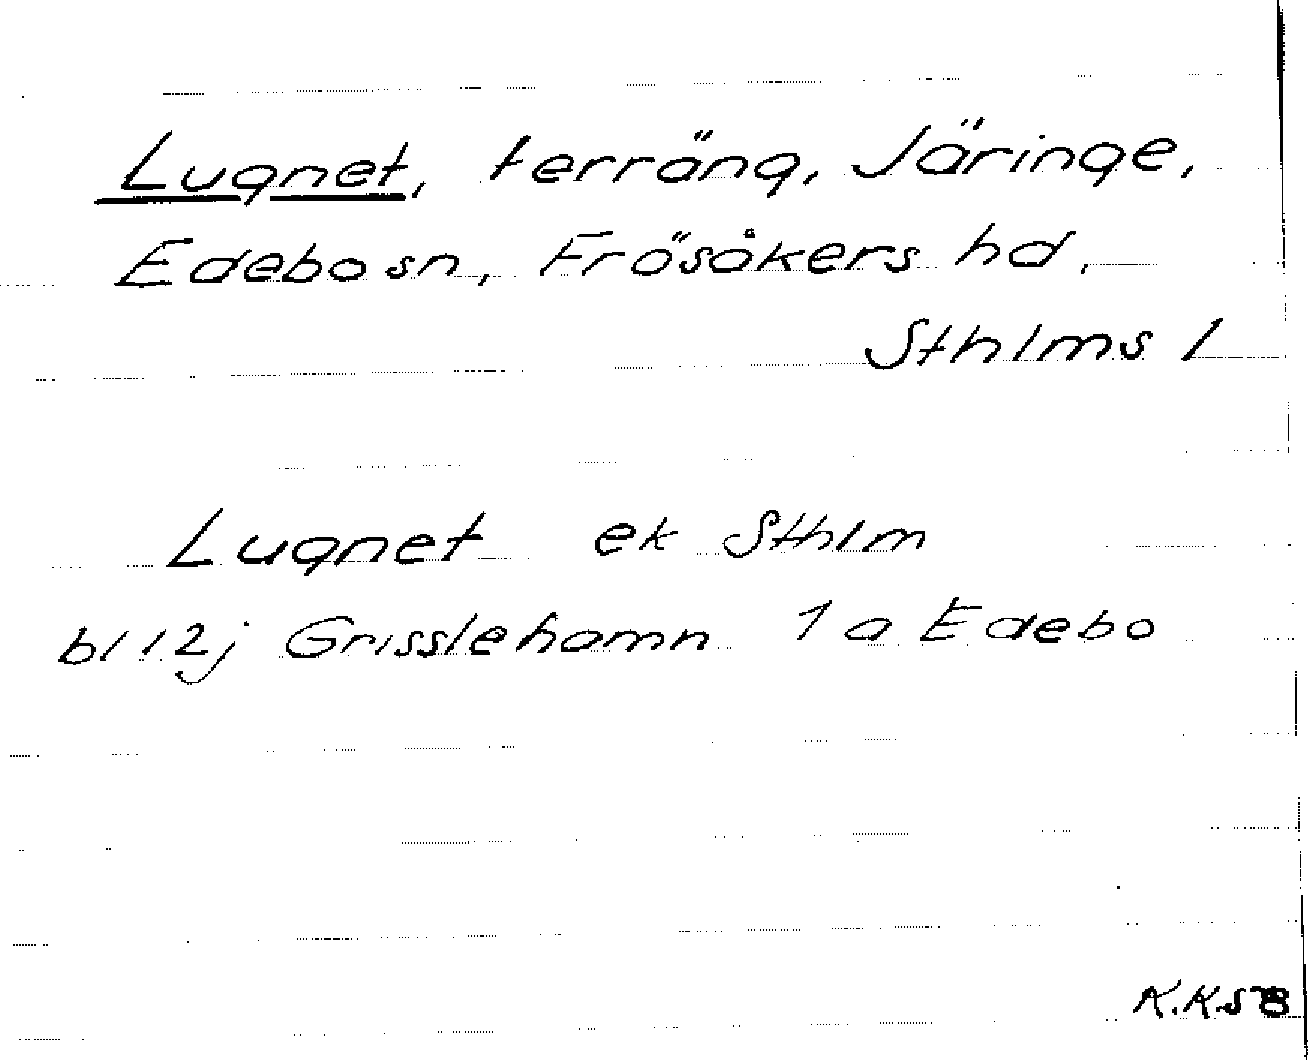 Lugnet, terräng, Järinge,
Edebo sn, Frösåkers hd,
Sthlms l
Lugnet ek Sthlm
bl 12j Grisslehamn 1a Edebo
K.K.58